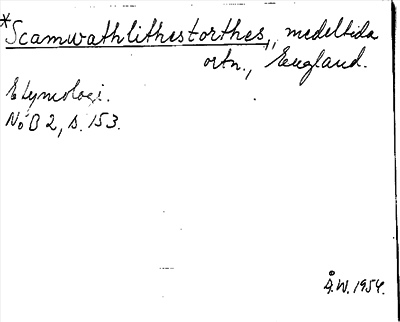 *Scamwathlithestorthes, medeltida
ortn., England.
Etymologi.
NoB 2, s. 153.
Å.W. 1954.